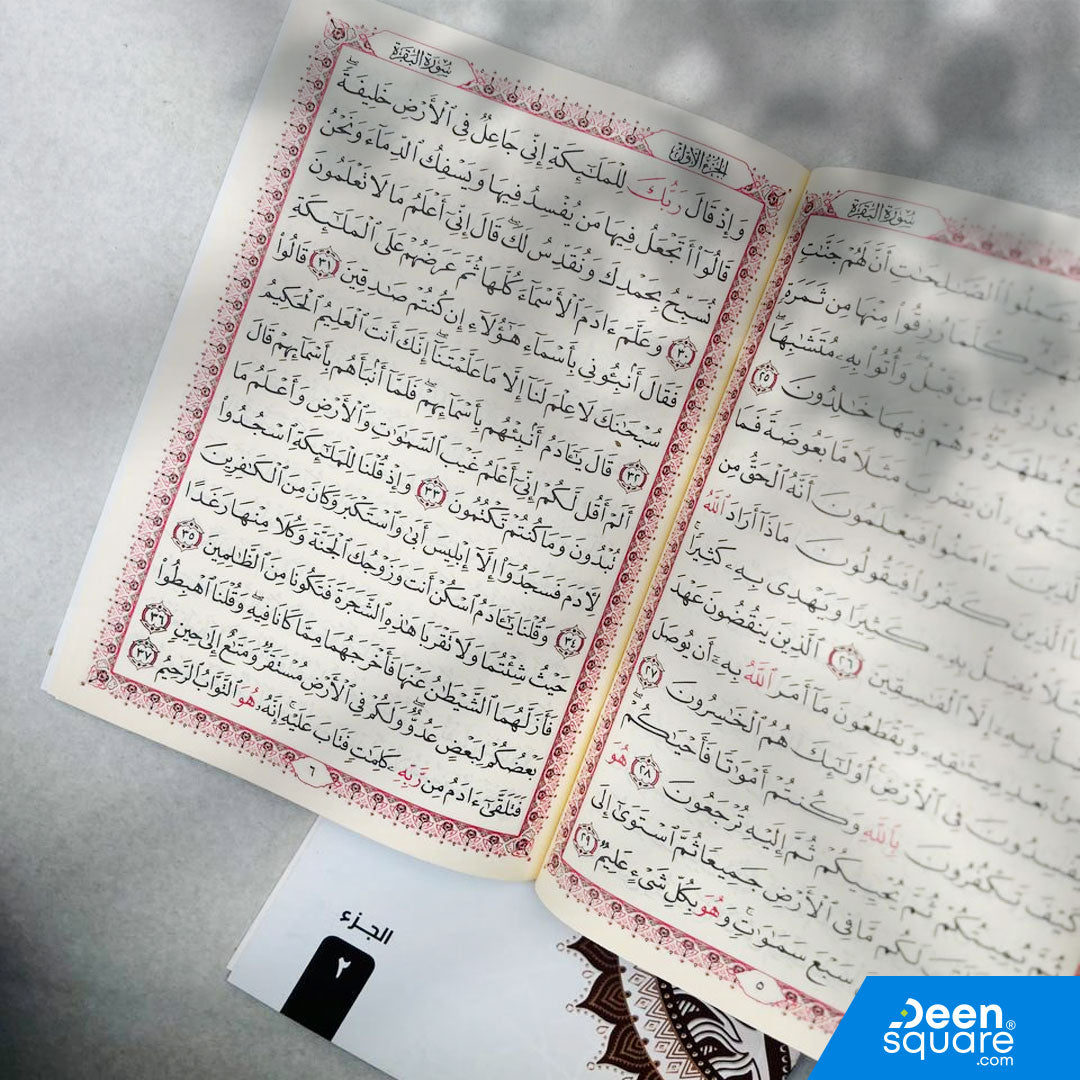 سُورَةُ البَقَرَة
عَمِلُوا۟ ٱلصَّـٰلِحَـٰتِ أَنَّ لَهُمْ جَنَّـٰتٍ
كُلَّمَا رُزِقُوا۟ مِنْهَا مِن ثَمَرَةٍ
رُزِقْنَا مِن قَبْلُ وَأُتُوا۟ بِهِۦ مُتَشَـٰبِهًا ۖ
مُّطَهَّرَةٌ وَهُمْ فِيهَا خَـٰلِدُونَ ٢٥
أَن يَضْرِبَ مَثَلًا مَّا بَعُوضَةً فَمَا
ءَامَنُوا۟ فَيَعْلَمُونَ أَنَّهُ ٱلْحَقُّ مِن
ٱلَّذِينَ كَفَرُوا۟ فَيَقُولُونَ مَاذَآ أَرَادَ ٱللَّهُ
يُضِلُّ بِهِۦ كَثِيرًا وَيَهْدِى بِهِۦ كَثِيرًا ۚ
بِهِۦٓ إِلَّا ٱلْفَـٰسِقِينَ ٢٦ ٱلَّذِينَ يَنقُضُونَ عَهْدَ
بَعْدِ مِيثَـٰقِهِۦ وَيَقْطَعُونَ مَآ أَمَرَ ٱللَّهُ بِهِۦٓ أَن يُوصَلَ
فِى ٱلْأَرْضِ ۚ أُو۟لَـٰٓئِكَ هُمُ ٱلْخَـٰسِرُونَ ٢٧
كَيْفَ تَكْفُرُونَ بِٱللَّهِ وَكُنتُمْ أَمْوَٰتًا فَأَحْيَـٰكُمْ ۖ
ثُمَّ يُمِيتُكُمْ ثُمَّ يُحْيِيكُمْ ثُمَّ إِلَيْهِ تُرْجَعُونَ ٢٨ هُوَ
لَكُم مَّا فِى ٱلْأَرْضِ جَمِيعًا ثُمَّ ٱسْتَوَىٰٓ إِلَى
سَبْعَ سَمَـٰوَٰتٍ ۚ وَهُوَ بِكُلِّ شَىْءٍ عَلِيمٌ ٢٩
٥
الجُزْءُ الأوَّل
سُورَةُ البَقَرَة
وَإِذْ قَالَ رَبُّكَ لِلْمَلَـٰٓئِكَةِ إِنِّى جَاعِلٌ فِى ٱلْأَرْضِ خَلِيفَةً ۖ
قَالُوٓا۟ أَتَجْعَلُ فِيهَا مَن يُفْسِدُ فِيهَا وَيَسْفِكُ ٱلدِّمَآءَ وَنَحْنُ
نُسَبِّحُ بِحَمْدِكَ وَنُقَدِّسُ لَكَ ۖ قَالَ إِنِّىٓ أَعْلَمُ مَا لَا تَعْلَمُونَ
٣٠ وَعَلَّمَ ءَادَمَ ٱلْأَسْمَآءَ كُلَّهَا ثُمَّ عَرَضَهُمْ عَلَى ٱلْمَلَـٰٓئِكَةِ
فَقَالَ أَنۢبِـُٔونِى بِأَسْمَآءِ هَـٰٓؤُلَآءِ إِن كُنتُمْ صَـٰدِقِينَ ٣١ قَالُوا۟
سُبْحَـٰنَكَ لَا عِلْمَ لَنَآ إِلَّا مَا عَلَّمْتَنَآ ۖ إِنَّكَ أَنتَ ٱلْعَلِيمُ ٱلْحَكِيمُ
٣٢ قَالَ يَـٰٓـَٔادَمُ أَنۢبِئْهُم بِأَسْمَآئِهِمْ ۖ فَلَمَّآ أَنۢبَأَهُم بِأَسْمَآئِهِمْ قَالَ
أَلَمْ أَقُل لَّكُمْ إِنِّىٓ أَعْلَمُ غَيْبَ ٱلسَّمَـٰوَٰتِ وَٱلْأَرْضِ وَأَعْلَمُ مَا
تُبْدُونَ وَمَا كُنتُمْ تَكْتُمُونَ ٣٣ وَإِذْ قُلْنَا لِلْمَلَـٰٓئِكَةِ ٱسْجُدُوا۟
لِـَٔادَمَ فَسَجَدُوٓا۟ إِلَّآ إِبْلِيسَ أَبَىٰ وَٱسْتَكْبَرَ وَكَانَ مِنَ ٱلْكَـٰفِرِينَ
٣٤ وَقُلْنَا يَـٰٓـَٔادَمُ ٱسْكُنْ أَنتَ وَزَوْجُكَ ٱلْجَنَّةَ وَكُلَا مِنْهَا رَغَدًا
حَيْثُ شِئْتُمَا وَلَا تَقْرَبَا هَـٰذِهِ ٱلشَّجَرَةَ فَتَكُونَا مِنَ ٱلظَّـٰلِمِينَ ٣٥
فَأَزَلَّهُمَا ٱلشَّيْطَـٰنُ عَنْهَا فَأَخْرَجَهُمَا مِمَّا كَانَا فِيهِ ۖ وَقُلْنَا ٱهْبِطُوا۟
بَعْضُكُمْ لِبَعْضٍ عَدُوٌّ ۖ وَلَكُمْ فِى ٱلْأَرْضِ مُسْتَقَرٌّ وَمَتَـٰعٌ إِلَىٰ حِينٍ ٣٦
فَتَلَقَّىٰٓ ءَادَمُ مِن رَّبِّهِۦ كَلِمَـٰتٍ فَتَابَ عَلَيْهِ ۚ إِنَّهُۥ هُوَ ٱلتَّوَّابُ ٱلرَّحِيمُ ٣٧
٦
الجزء
٢
Deen
square®
.com